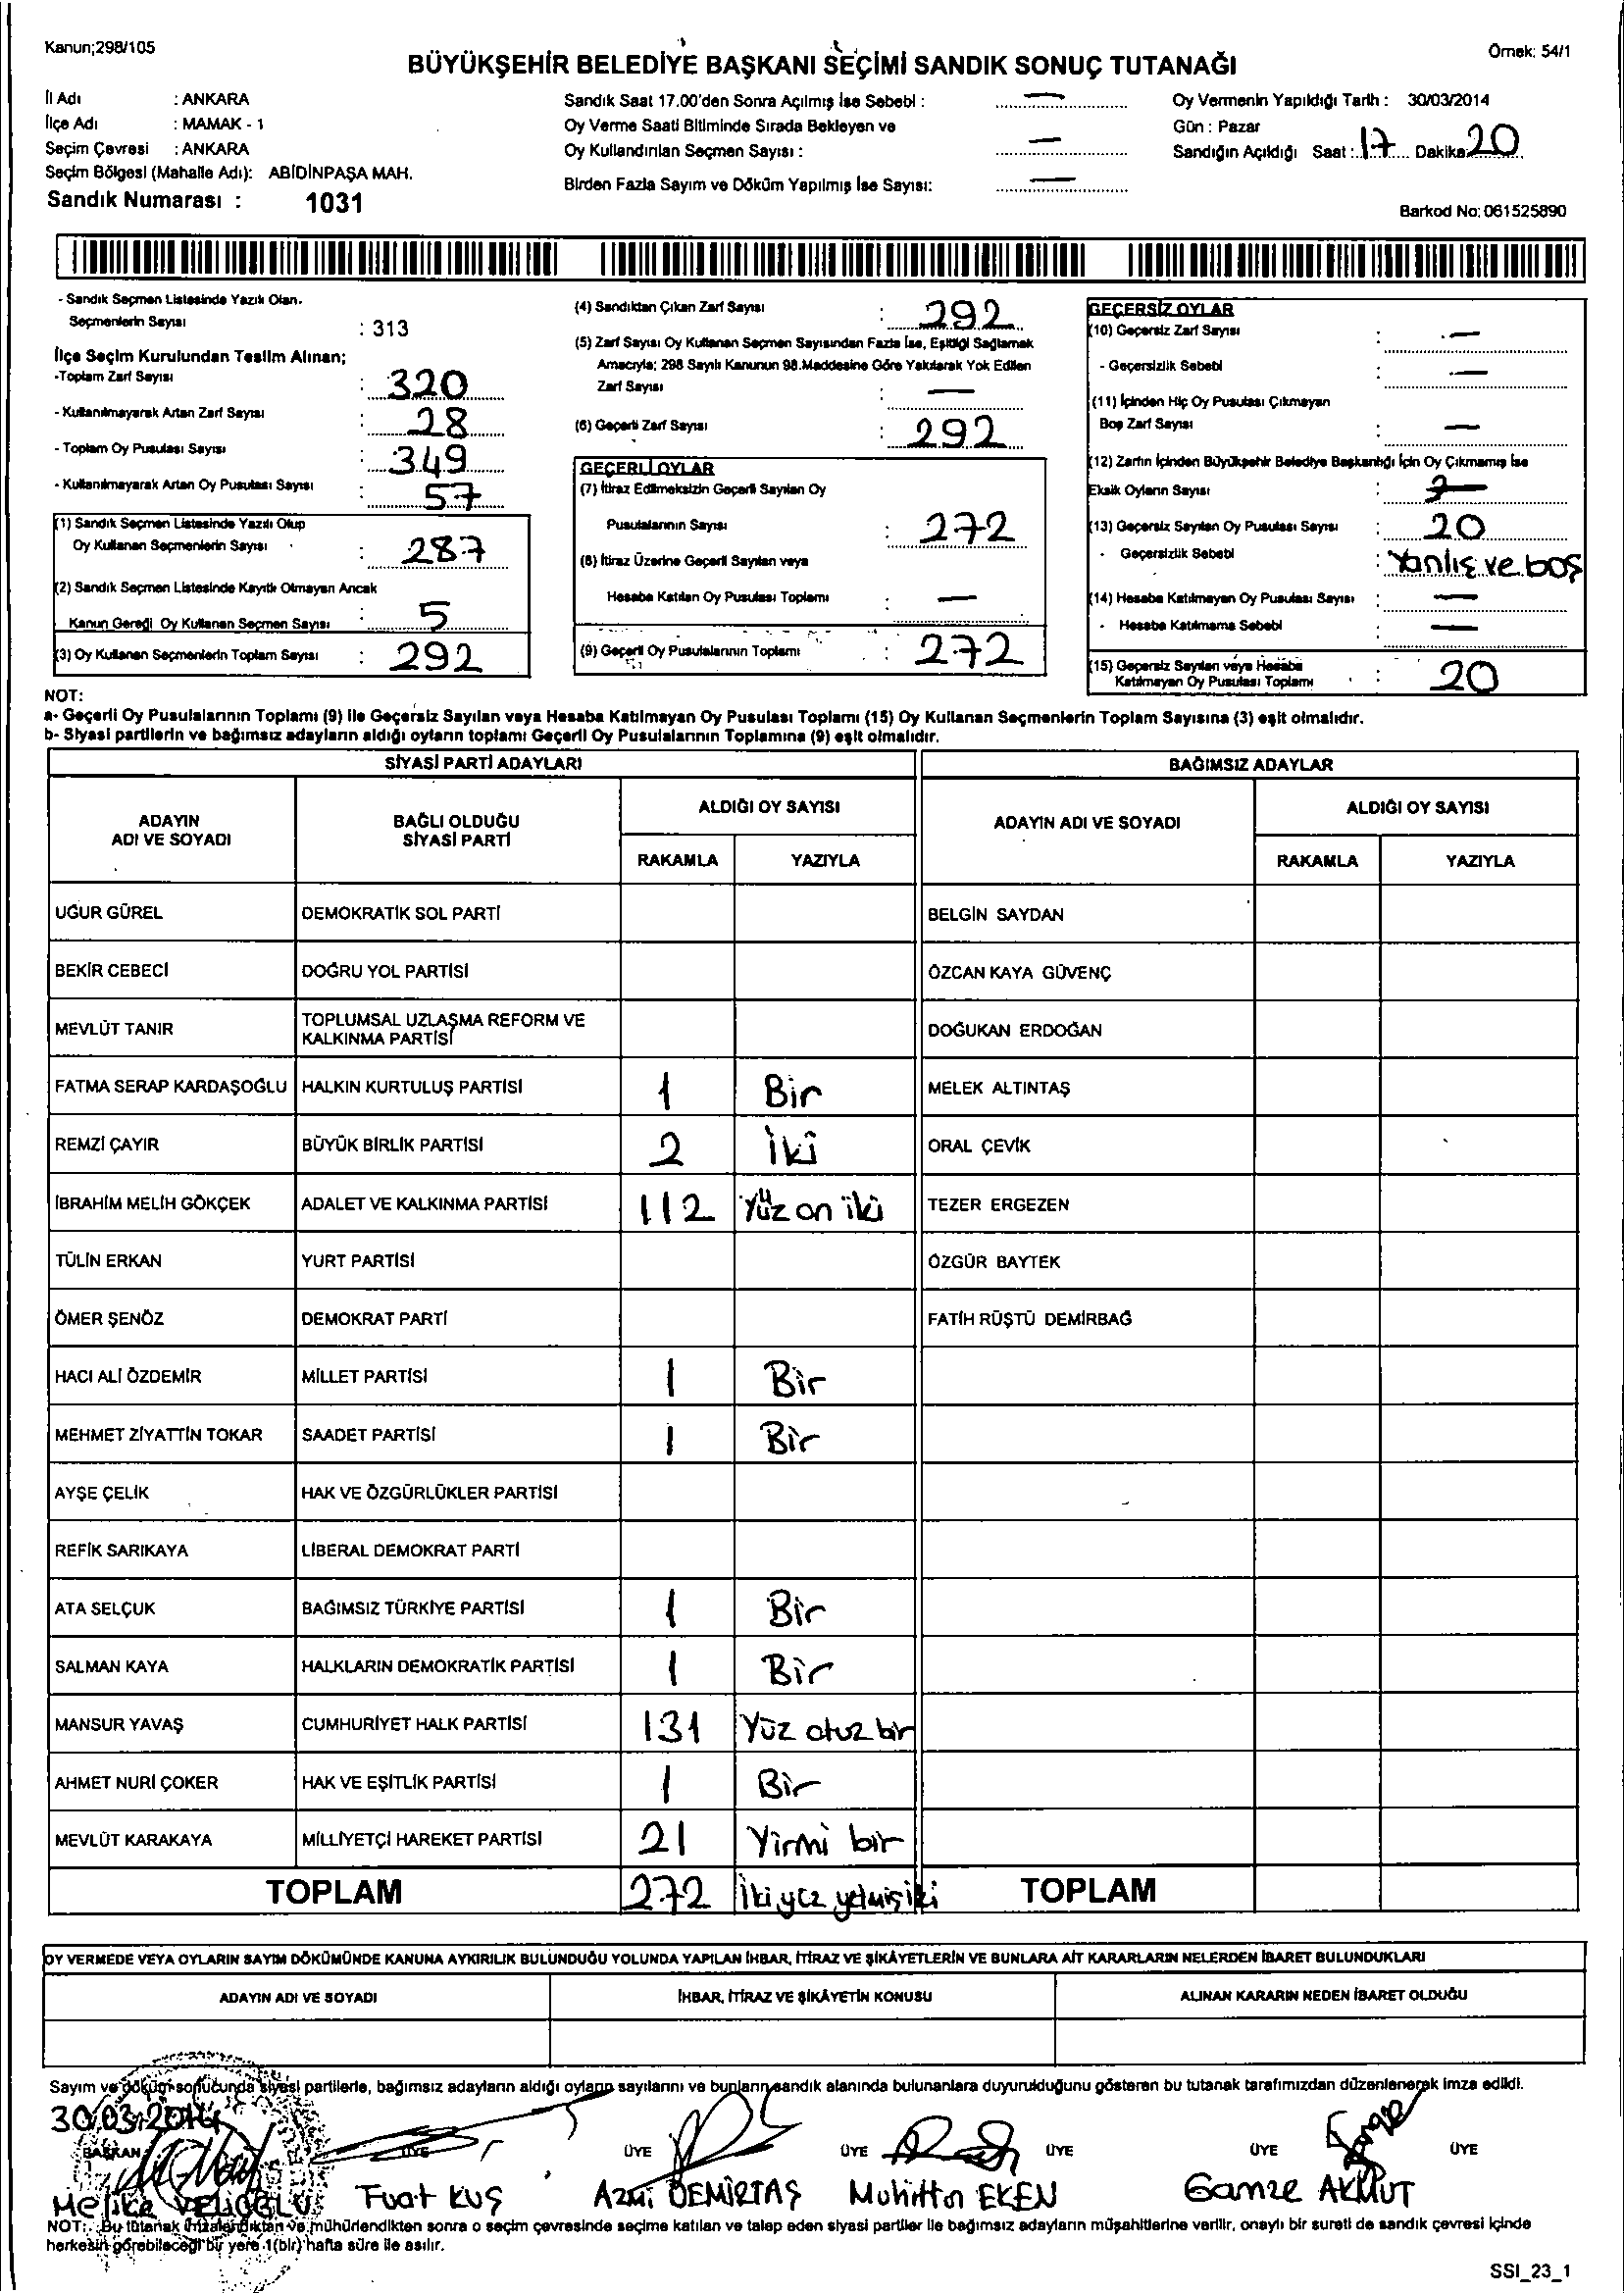 Kanun;298/105
Örnek: 54/1
BÜYÜKŞEHİR BELEDİYE BAŞKANI SEÇİMİ SANDIK SONUÇ TUTANAĞI
İl Adı : ANKARA
İlçe Adı : MAMAK - 1
Seçim Çevresi : ANKARA
Seçim Bölgesi (Mahalle Adı): ABİDİNPAŞA MAH.
Sandık Numarası : 1031
Sandık Saat 17.00'den Sonra Açılmış İse Sebebi : —
Oy Verme Saati Bitiminde Sırada Bekleyen ve
Oy Kullandırılan Seçmen Sayısı : —
Birden Fazla Sayım ve Döküm Yapılmış İse Sayısı: —
Oy Vermenin Yapıldığı Tarih : 30/03/2014
Gün : Pazar
Sandığın Açıldığı Saat : 17 Dakika: 20
Barkod No: 061525890
- Sandık Seçmen Listesinde Yazılı Olan.
Seçmenlerin Sayısı : 313
İlçe Seçim Kurulundan Teslim Alınan;
-Toplam Zarf Sayısı : 320
- Kullanılmayarak Artan Zarf Sayısı : 28
- Toplam Oy Pusulası Sayısı : 349
- Kullanılmayarak Artan Oy Pusulası Sayısı : 57
(1) Sandık Seçmen Listesinde Yazılı Olup
Oy Kullanan Seçmenlerin Sayısı : 287
(2) Sandık Seçmen Listesinde Kayıtlı Olmayan Ancak
Kanun Gereği Oy Kullanan Seçmen Sayısı : 5
(3) Oy Kullanan Seçmenlerin Toplam Sayısı : 292
(4) Sandıktan Çıkan Zarf Sayısı : 292
(5) Zarf Sayısı Oy Kullanan Seçmen Sayısından Fazla İse, Eşitliği Sağlamak
Amacıyla; 298 Sayılı Kanunun 98.Maddesine Göre Yakılarak Yok Edilen
Zarf Sayısı : —
(6) Geçerli Zarf Sayısı : 292
GEÇERLİ OYLAR
(7) İtiraz Edilmeksizin Geçerli Sayılan Oy
Pusulalarının Sayısı : 272
(8) İtiraz Üzerine Geçerli Sayılan veya
Hesaba Katılan Oy Pusulası Toplamı : —
(9) Geçerli Oy Pusulalarının Toplamı : 272
GEÇERSİZ OYLAR
(10) Geçersiz Zarf Sayısı : —
- Geçersizlik Sebebi : —
(11) İçinden Hiç Oy Pusulası Çıkmayan
Boş Zarf Sayısı : —
(12) Zarfın İçinden Büyükşehir Belediye Başkanlığı İçin Oy Çıkmamış İse
Eksik Oyların Sayısı : —
(13) Geçersiz Sayılan Oy Pusulası Sayısı : 20
- Geçersizlik Sebebi : Yanlış ve boş
(14) Hesaba Katılmayan Oy Pusulası Sayısı : —
- Hesaba Katılmama Sebebi : —
(15) Geçersiz Sayılan veya Hesaba
Katılmayan Oy Pusulası Toplamı : 20
NOT:
a- Geçerli Oy Pusulalarının Toplamı (9) ile Geçersiz Sayılan veya Hesaba Katılmayan Oy Pusulası Toplamı (15) Oy Kullanan Seçmenlerin Toplam Sayısına (3) eşit olmalıdır.
b- Siyasi partilerin ve bağımsız adayların aldığı oyların toplamı Geçerli Oy Pusulalarının Toplamına (9) eşit olmalıdır.
SİYASİ PARTİ ADAYLARI BAĞIMSIZ ADAYLAR
ADAYIN ADI VE SOYADI BAĞLI OLDUĞU SİYASİ PARTİ ALDIĞI OY SAYISI ADAYIN ADI VE SOYADI ALDIĞI OY SAYISI
RAKAMLA YAZIYLA RAKAMLA YAZIYLA
UĞUR GÜREL DEMOKRATİK SOL PARTİ BELGİN SAYDAN
BEKİR CEBECİ DOĞRU YOL PARTİSİ ÖZCAN KAYA GÜVENÇ
MEVLÜT TANIR TOPLUMSAL UZLAŞMA REFORM VE KALKINMA PARTİSİ DOĞUKAN ERDOĞAN
FATMA SERAP KARDAŞOĞLU HALKIN KURTULUŞ PARTİSİ 1 Bir MELEK ALTINTAŞ
REMZİ ÇAYIR BÜYÜK BİRLİK PARTİSİ 2 İki ORAL ÇEVİK
İBRAHİM MELİH GÖKÇEK ADALET VE KALKINMA PARTİSİ 112 Yüz on iki TEZER ERGEZEN
TÜLİN ERKAN YURT PARTİSİ ÖZGÜR BAYTEK
ÖMER ŞENÖZ DEMOKRAT PARTİ FATİH RÜŞTÜ DEMİRBAĞ
HACI ALİ ÖZDEMİR MİLLET PARTİSİ 1 Bir
MEHMET ZİYATTİN TOKAR SAADET PARTİSİ 1 Bir
AYŞE ÇELİK HAK VE ÖZGÜRLÜKLER PARTİSİ
REFİK SARIKAYA LİBERAL DEMOKRAT PARTİ
ATA SELÇUK BAĞIMSIZ TÜRKİYE PARTİSİ 1 Bir
SALMAN KAYA HALKLARIN DEMOKRATİK PARTİSİ 1 Bir
MANSUR YAVAŞ CUMHURİYET HALK PARTİSİ 131 Yüz otuz bir
AHMET NURİ ÇOKER HAK VE EŞİTLİK PARTİSİ 1 Bir
MEVLÜT KARAKAYA MİLLİYETÇİ HAREKET PARTİSİ 21 Yirmi bir
TOPLAM 272 İki yüz yetmiş iki TOPLAM
OY VERMEDE VEYA OYLARIN SAYIM DÖKÜMÜNDE KANUNA AYKIRILIK BULUNDUĞU YOLUNDA YAPILAN İHBAR, İTİRAZ VE ŞİKÂYETLERİN VE BUNLARA AİT KARARLARIN NELERDEN İBARET BULUNDUKLARI
ADAYIN ADI VE SOYADI İHBAR, İTİRAZ VE ŞİKÂYETİN KONUSU ALINAN KARARIN NEDEN İBARET OLDUĞU
Sayım ve döküm sonucunda siyasi partilerle, bağımsız adayların aldığı oyların sayılarını ve bunların sandık alanında bulunanlara duyurulduğunu gösteren bu tutanak tarafımızdan düzenlenerek imza edildi.
30.03.2014
BAŞKAN ÜYE ÜYE ÜYE ÜYE ÜYE ÜYE
Melike VELİOĞLU Fuat KUŞ Azmi DEMİRTAŞ Muhittin EKEN Gamze AKMUT
NOT: Bu tutanak imzalandıktan ve mühürlendikten sonra o seçim çevresinde seçime katılan ve talep eden siyasi partiler ile bağımsız adayların müşahitlerine verilir, onaylı bir sureti de sandık çevresi içinde
herkesin görebileceği bir yere 1(bir) hafta süre ile asılır.
SSI_23_1